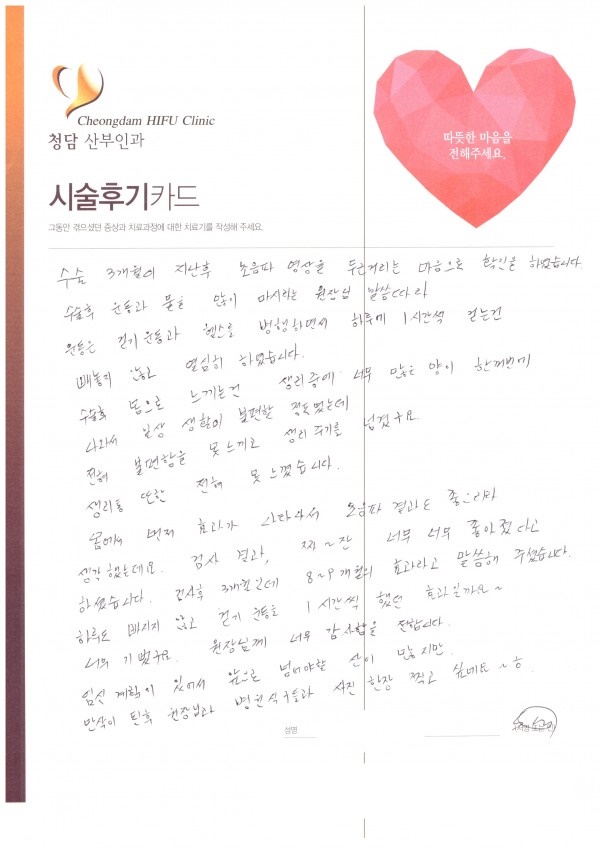 Cheongdam HIFU Clinic
청담 산부인과
따뜻한 마음을
전해주세요.
시술후기카드
그동안 겪으셨던 증상과 치료과정에 대한 치료기를 작성해 주세요.
수술 3개월이 지난후 초음파 영상을 두근거리는 마음으로 확인을 하였습니다
수술후 운동과 물을 많이 마시라는 원장님 말씀따라
운동은 걷기운동과 병행하면서 하루에 1시간씩 걷는건
빼놓지 않고 열심히 하였습니다.
수술후 몸으로 느끼는건 생리중에 너무 많은 양이 한꺼번에
나와서 일상 생활이 불편할 정도였는데
전혀 불편함을 못느끼고 생리주기를 넘겼구요
생리통 또한 전혀 못느꼈습니다.
몸에서 먼저 효과가 나타나서 초음파 결과도 좋으리라
생각했는데요. 검사 결과, 짜~잔 너무 너무 좋아졌다고
하셨습니다. 3개월인데 8~9개월의 효과라고 말씀해 주셨습니다.
하루도 빠지지 않고 걷기 운동을 1시간씩 했던 효과일까요~
너무 기뻤구요. 원장님께 너무 감사함을 전합니다.
임신 계획이 있어서 앞으로 넘어야할 산이 많지만.
만삭이 된후 원장님과 병원식구들과 사진 한장 찍고 싶네요~^^
성명